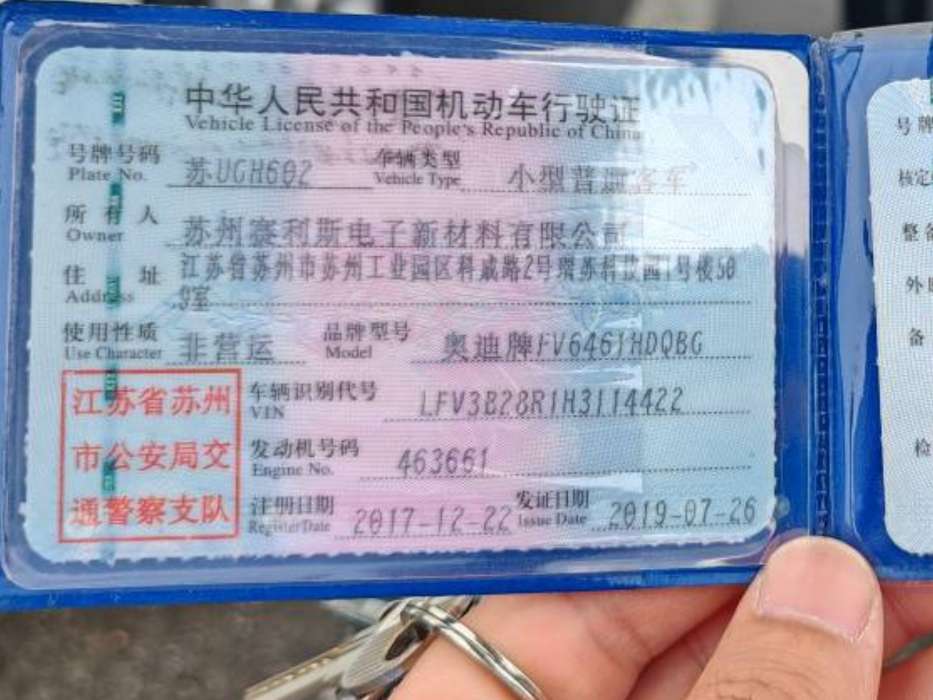 中华人民共和国机动车行驶证
Vehicle License of the People's Republic of China
号牌号码 苏UGH602 车辆类型 小型普通客车
Plate No. Vehicle Type
所有人 苏州赛利斯电子新材料有限公司
Owner
住址 江苏省苏州市苏州工业园区科威路2号瑞苏科技园1号楼50
Address 9室
使用性质 非营运 品牌型号 奥迪牌FV6461HDQBG
Use Character Model
江苏省苏州 车辆识别代号 LFV3B28R1H3114422
VIN
市公安局交 发动机号码 463661
Engine No.
通警察支队 注册日期 2017-12-22 发证日期 2019-07-26
Register Date Issue Date
号牌
核定
整备
外
备
检